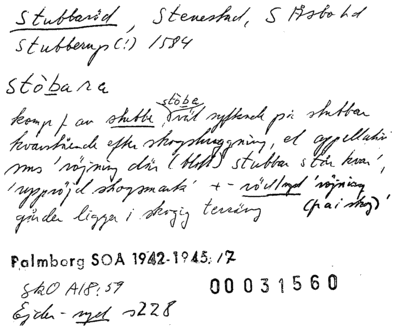 Stubbaröd, Stenestad, S Åsbo hd
Stubberup (!) 1584
stòbara
stöba
komp f av stubbe trol syftande på stubbar
kvarstående efter skogshuggning, el appellativ
sms 'röjning där (blott) stubbar står kvar',
'uppröjd skogsmark' +- röd/ryd 'röjning
gården ligger i skogig terräng (på i skog)'
Palmborg SOA 1942-1945: 17
00031560
SkO A18:59
Ejder - ryd s228